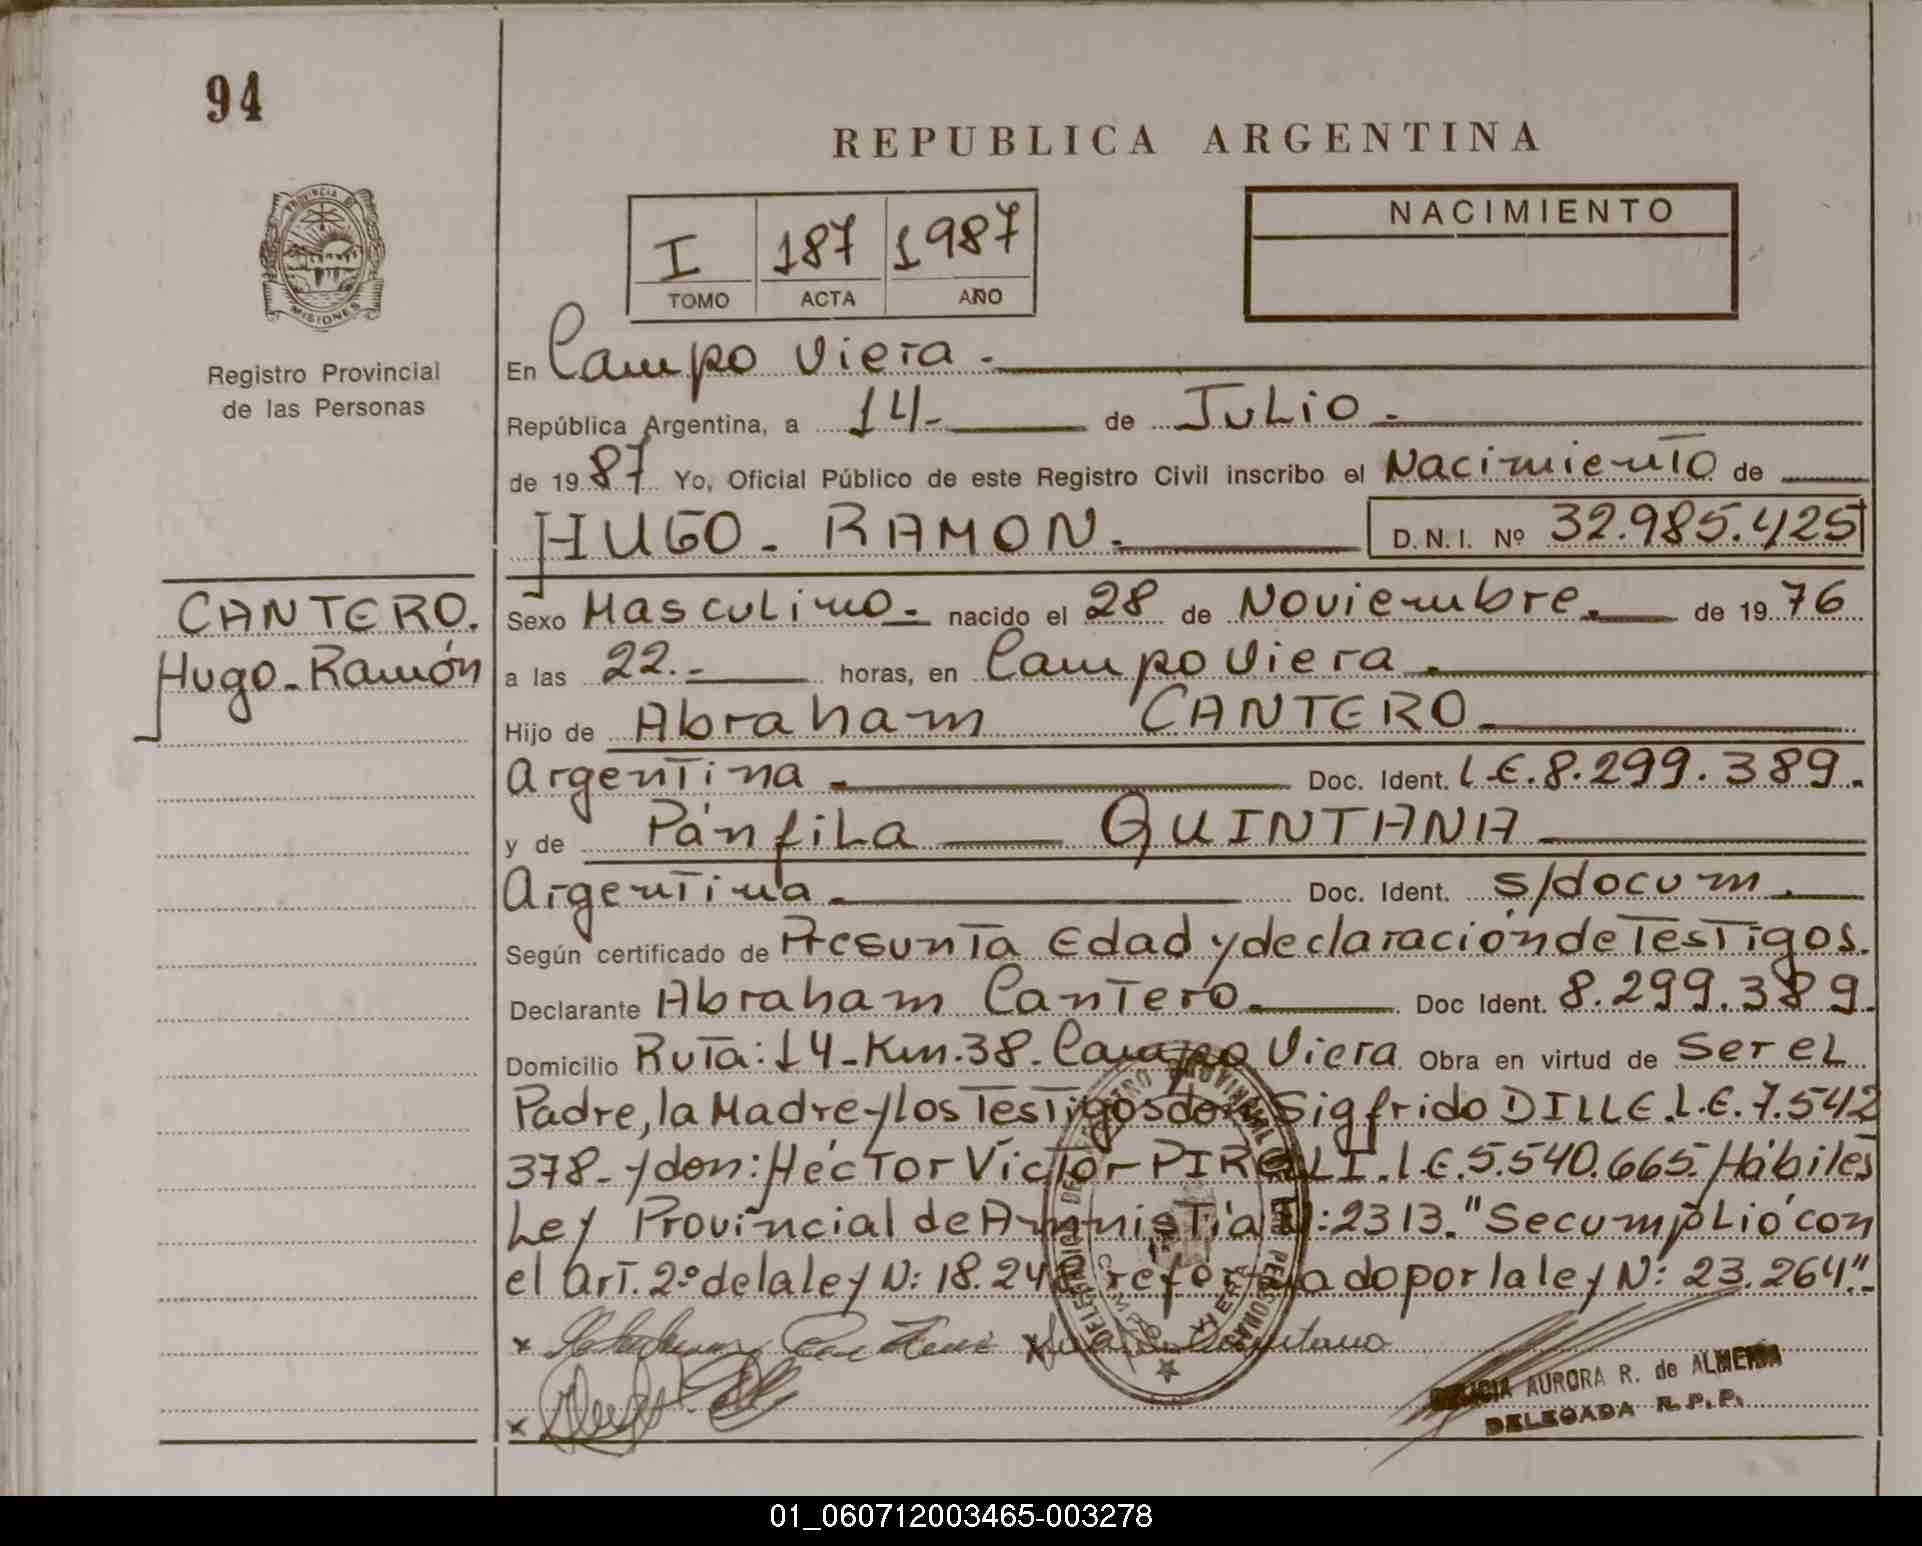 94
REPUBLICA ARGENTINA
PROVINCIA DE
MISIONES
Registro Provincial
de las Personas
I 187 1987
TOMO ACTA AÑO
NACIMIENTO
En Campo Viera.
República Argentina, a 14- de Julio.
de 1987 Yo, Oficial Público de este Registro Civil inscribo el Nacimiento de
HUGO - RAMON. D.N.I. Nº 32.985.425
CANTERO.
Hugo-Ramón
Sexo Masculino.- nacido el 28 de Noviembre. de 1976
a las 22.- horas, en Campo Viera.
Hijo de Abraham CANTERO
Argentina. Doc. Ident. L.E.8.299.389.
y de Pánfila QUINTANA
Argentina. Doc. Ident. s/docum.
Según certificado de Presunta Edad y declaración de Testigos.
Declarante Abraham Cantero. Doc Ident. 8.299.389.
Domicilio Ruta: 14-Km.38- Campo Viera Obra en virtud de ser el
Padre, la Madre y los Testigos don Sigfrido DILLE.L.E.7.542
378- y don: Héctor Víctor PIRELLI.L.E.5.540.665. Hábiles
Ley Provincial de Amnistía N:2313."Se cumplió con
el Art. 2º de la ley N: 18.248 reformado por la ley N: 23.264".-
x Cantero x Quintana
DELEGACION DEL REGISTRO PROVINCIAL DE LAS PERSONAS
CAMPO VIERA
x
AURORA R. de ALMEIDA
DELEGADA R.P.P.
01_060712003465-003278